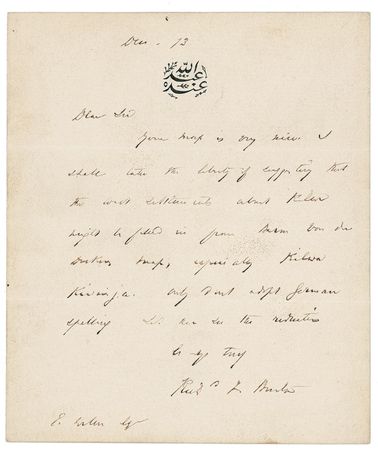 Dec. 13
عبد الله
عبده
Dear Sir
Your map is very nice. I
shall take the liberty of suggesting that
the west settlements about Kilwa
might be filled in from Baron Von der
Deckens map, especially Kilwa
Kivinja. Only don't adopt German
spelling
the
I am yrs truly
Richd F. Burton
E. Esq